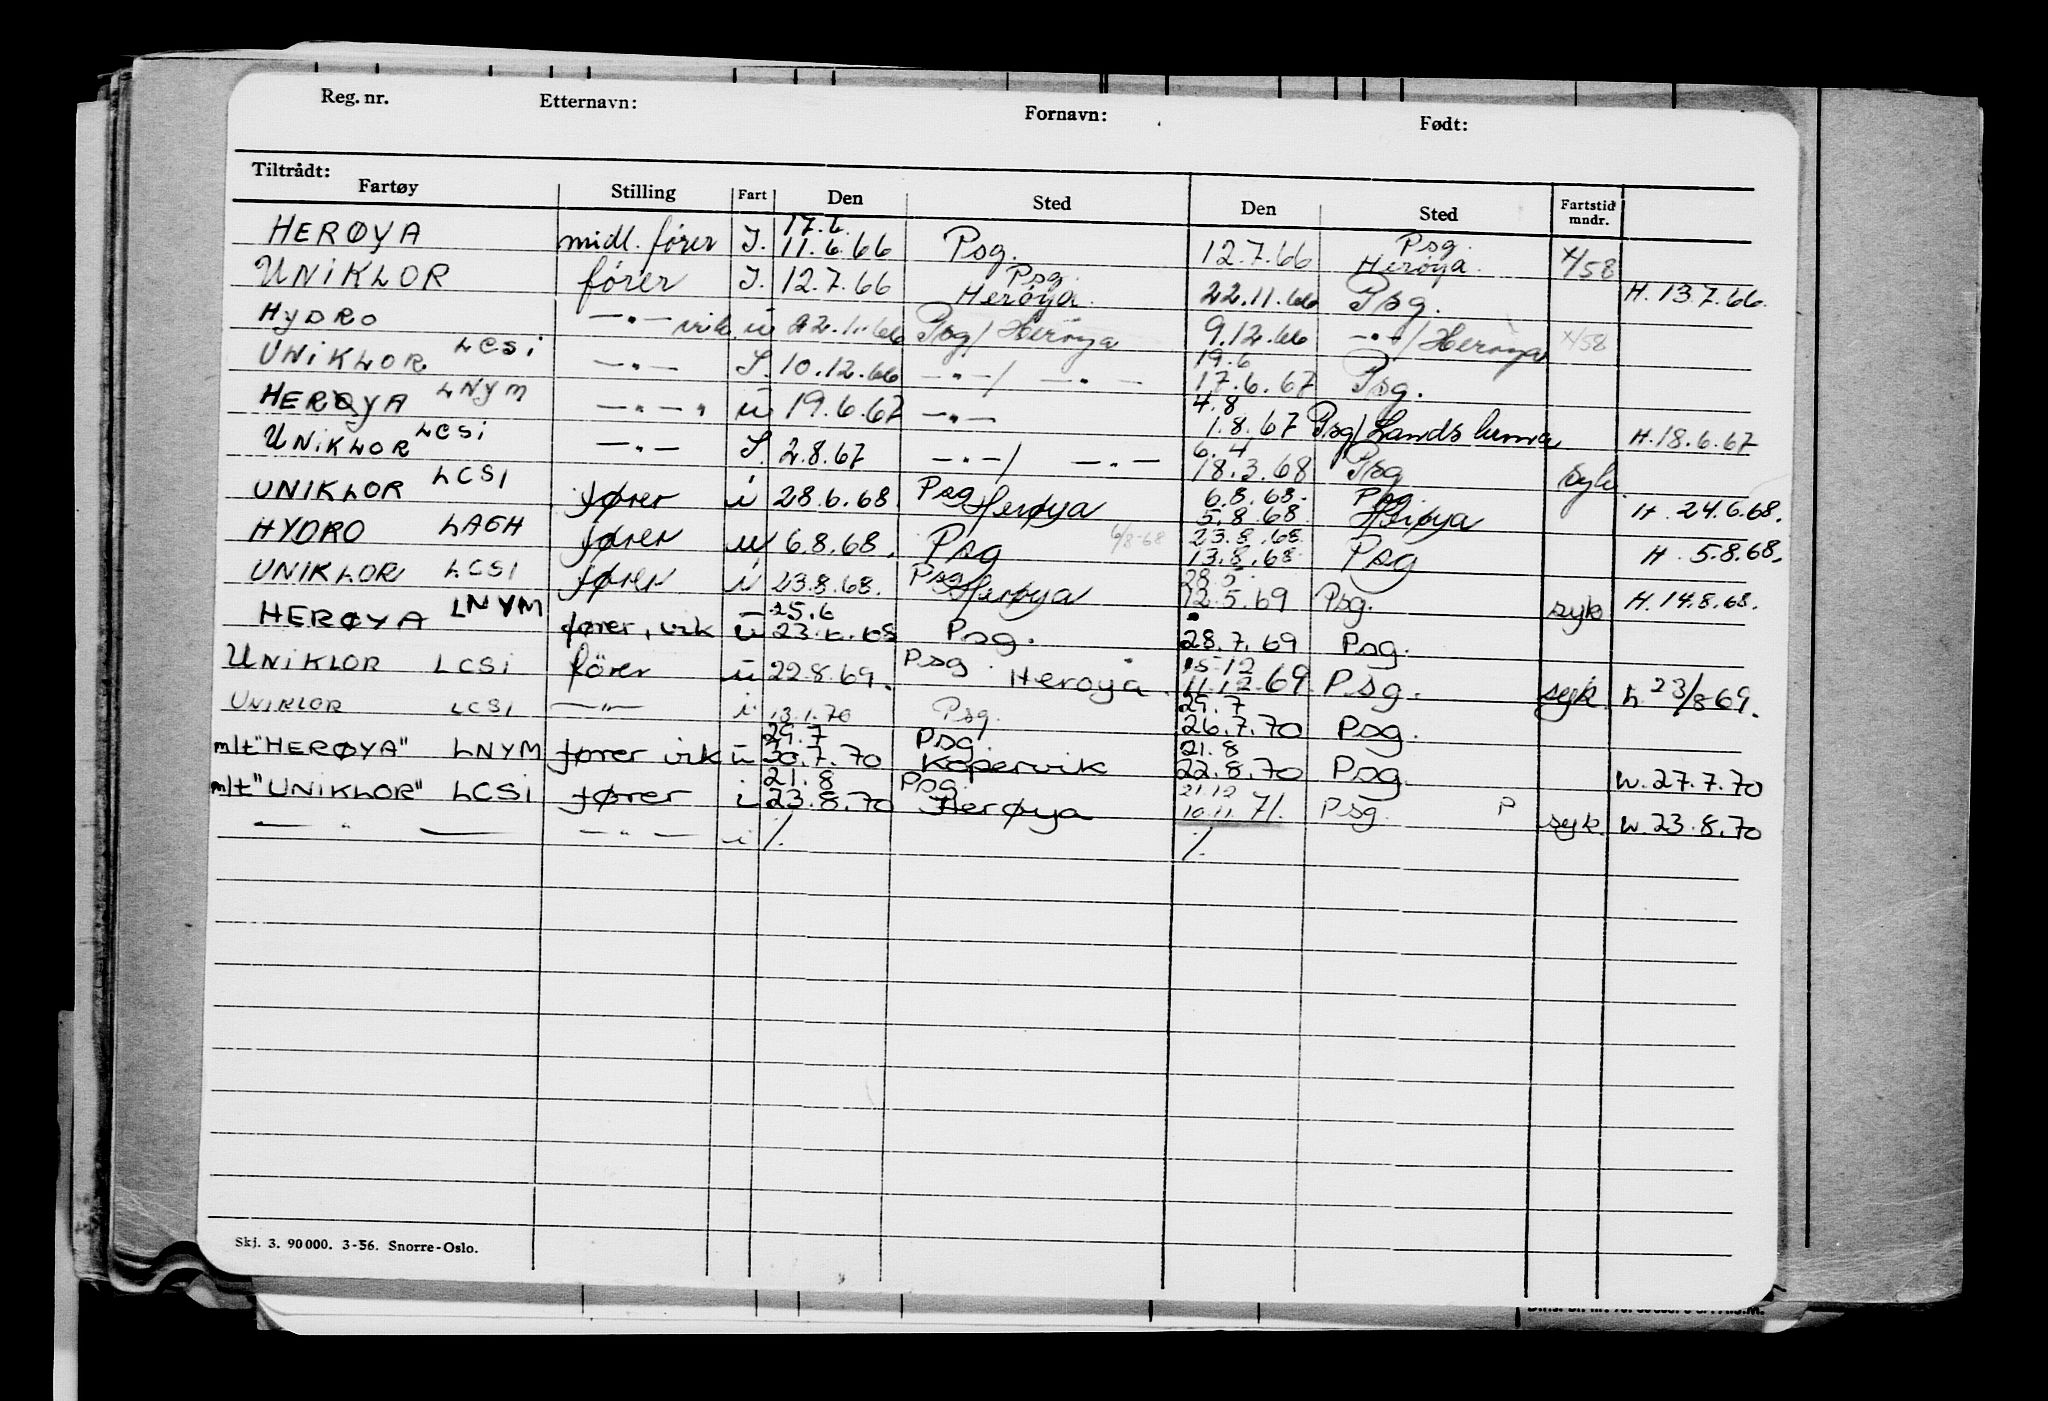 Reg. nr. Etternavn: Fornavn: Født:
Tiltrådt:
Fartøy Stilling Fart Den Sted Den Sted Fartstid mndr.
17.6. Psg.
HERØYA midl. fører I. 11.6.66 Psg. 12.7.66 Herøya. x/58
Psg.
UNIKLOR fører I. 12.7.66 Herøya. 22.11.66 Psg. H. 13.7.66.
HYDRO —"— vik. u 22.11.66 Psg/Herøya 9.12.66 —"—/Herøya x/58
19.6
UNIKLOR LCSI —"— I. 10.12.66 —"—/ —"— 17.6.67 Psg.
4.8
HERØYA LNYM —"—" u 19.6.67 —"— 1.8.67 Psg/Landskrona H.18.6.67
6.4
UNIKLOR LCSI —"— I. 2.8.67 —"—/ —"— 18.3.68 Psg syk.
6.8.68. Psg.
UNIKLOR LCSI fører i 28.6.68. Psg Herøya 5.8.68. Herøya H. 24.6.68.
23.8.68.
HYDRO LAEH fører u 6.8.68. Psg 6/8-68 13.8.68 Psg H. 5.8.68.
28.5.
UNIKLOR LCSI fører i 23.8.68. Psg Herøya 12.5.69 Psg. syk H. 14.8.68.
25.6
HERØYA LNYM fører, vik u 23.6.68 Psg. 28.7.69 Psg.
15.12
UNIKLOR LCSI förer u 22.8.69. Psg. Herøya. 11.12.69 Psg. syk h. 23/8 69.
29.7
UNIKLOR LCSI —"— i 13.1.70 Psg. 26.7.70 Psg.
29.7 Psg. 21.8
m/t "HERØYA" LNYM fører vik u 30.7.70 Kopervik 22.8.70 Psg. W. 27.7.70
21.8 Psg. 21.12
m/t "UNIKLOR" LCSI fører i 23.8.70 Herøya 10.11.71. Psg. P syk. W. 23.8.70
—"— —"— i /. /.
Skj. 3. 90 000. 3-56. Snorre-Oslo.